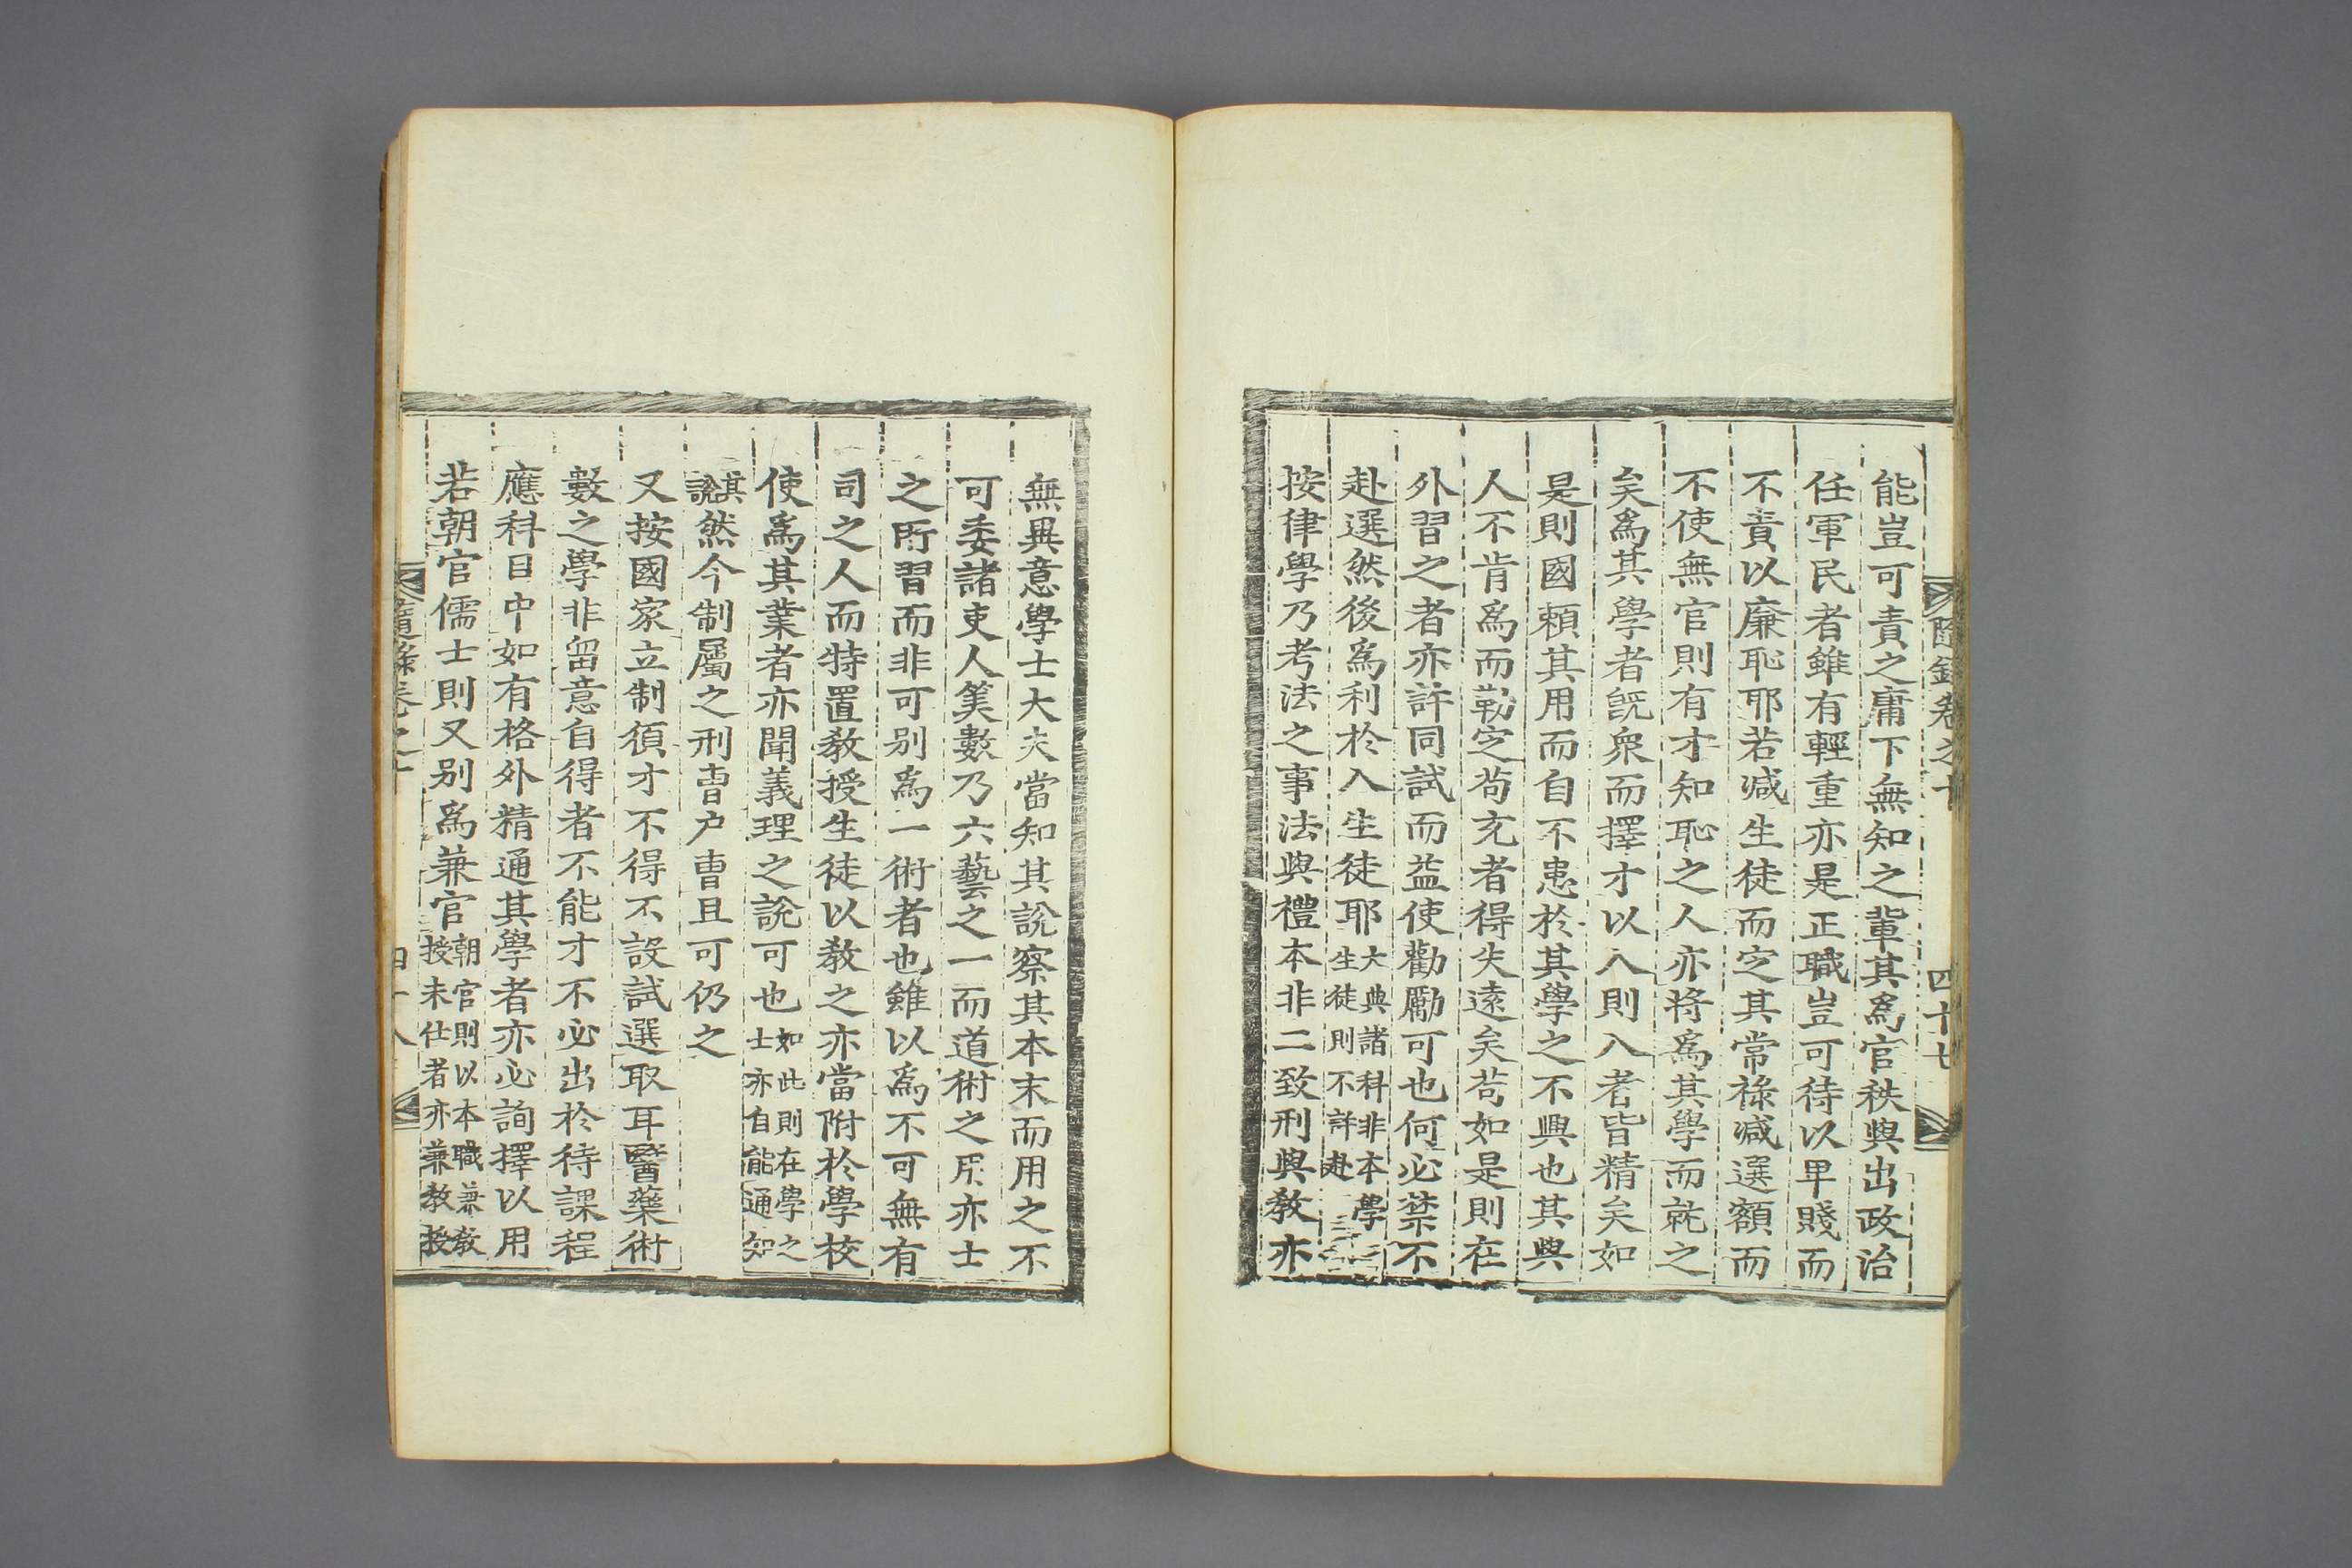 隨錄卷之十
四十七
能豈可責之庸下無知之輩其爲官秩與出政治
任軍民者雖有輕重亦是正職豈可待以卑賤而
不責以廉恥耶若减生徒而定其常祿减選額而
不使無官則有才知恥之人亦將爲其學而就之
矣爲其學者旣衆而擇才以入則入者皆精矣如
是則國頼其用而自不患於其學之不興也其與
人不肯爲而勒定苟充者得失遠矣苟如是則在
外習之者亦許同試而益使勸勵可也何必禁不
赴選然後爲利於入生徒耶大典諸科非本學
生徒則不許赴
按律學乃考法之事法與禮本非二致刑與敎亦
無異意學士大夫當知其說察其本末而用之不
可委諸吏人筭數乃六藝之一而道術之所亦士
之所習而非可别爲一術者也雖以爲不可無有
司之人而特置敎授生徒以敎之亦當附於學校
使爲其業者亦聞義理之說可也如此則在學之
士亦自能通知
其
說然今制屬之刑曹户曹且可仍之
又按國家立制須才不得不設試選取耳醫藥術
數之學非留意自得者不能才不必出於待課程
應科目中如有格外精通其學者亦必詢擇以用
若朝官儒士則又别爲兼官朝官則以本職兼敎
授未仕者亦兼敎授
隨錄卷之十
四十八